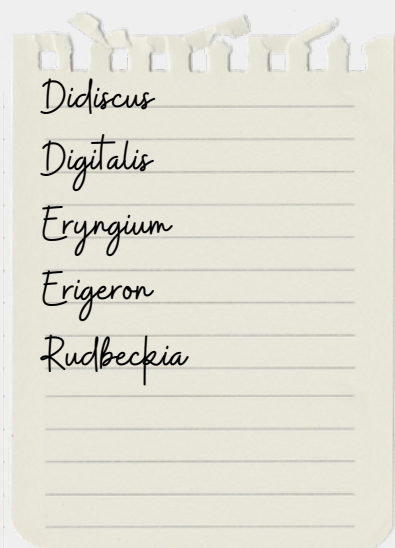 Didiscus
Digitalis
Eryngium
Erigeron
Rudbeckia